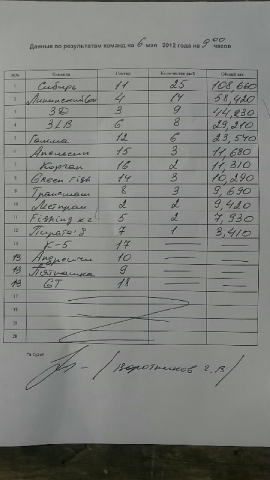 Данные по результатам команд на 6 мая 2012 года на 9 00 часов
Команда Сектор Количество рыб Общий вес
1 Сибирь 11 25 108,660
2 4 14 58,420
3 3D 3 9 44,230
4 ЗLB 6 8 29,210
5 Гамма 12 6 23,540
6 Апельсин 15 3 11,680
7 Корган 16 2 11,310
8 Green Fish 14 3 10,290
9 Трансмаш 8 3 9,690
10 Метпром 2 2 9,420
11 Fishing 5 2 7,930
12 7 1 3,410
K-5 17
13 Андреичи 10
13 Пятнашка 9
13 GT 18
17
18
19
20
Гл. Судья
/ Воротников